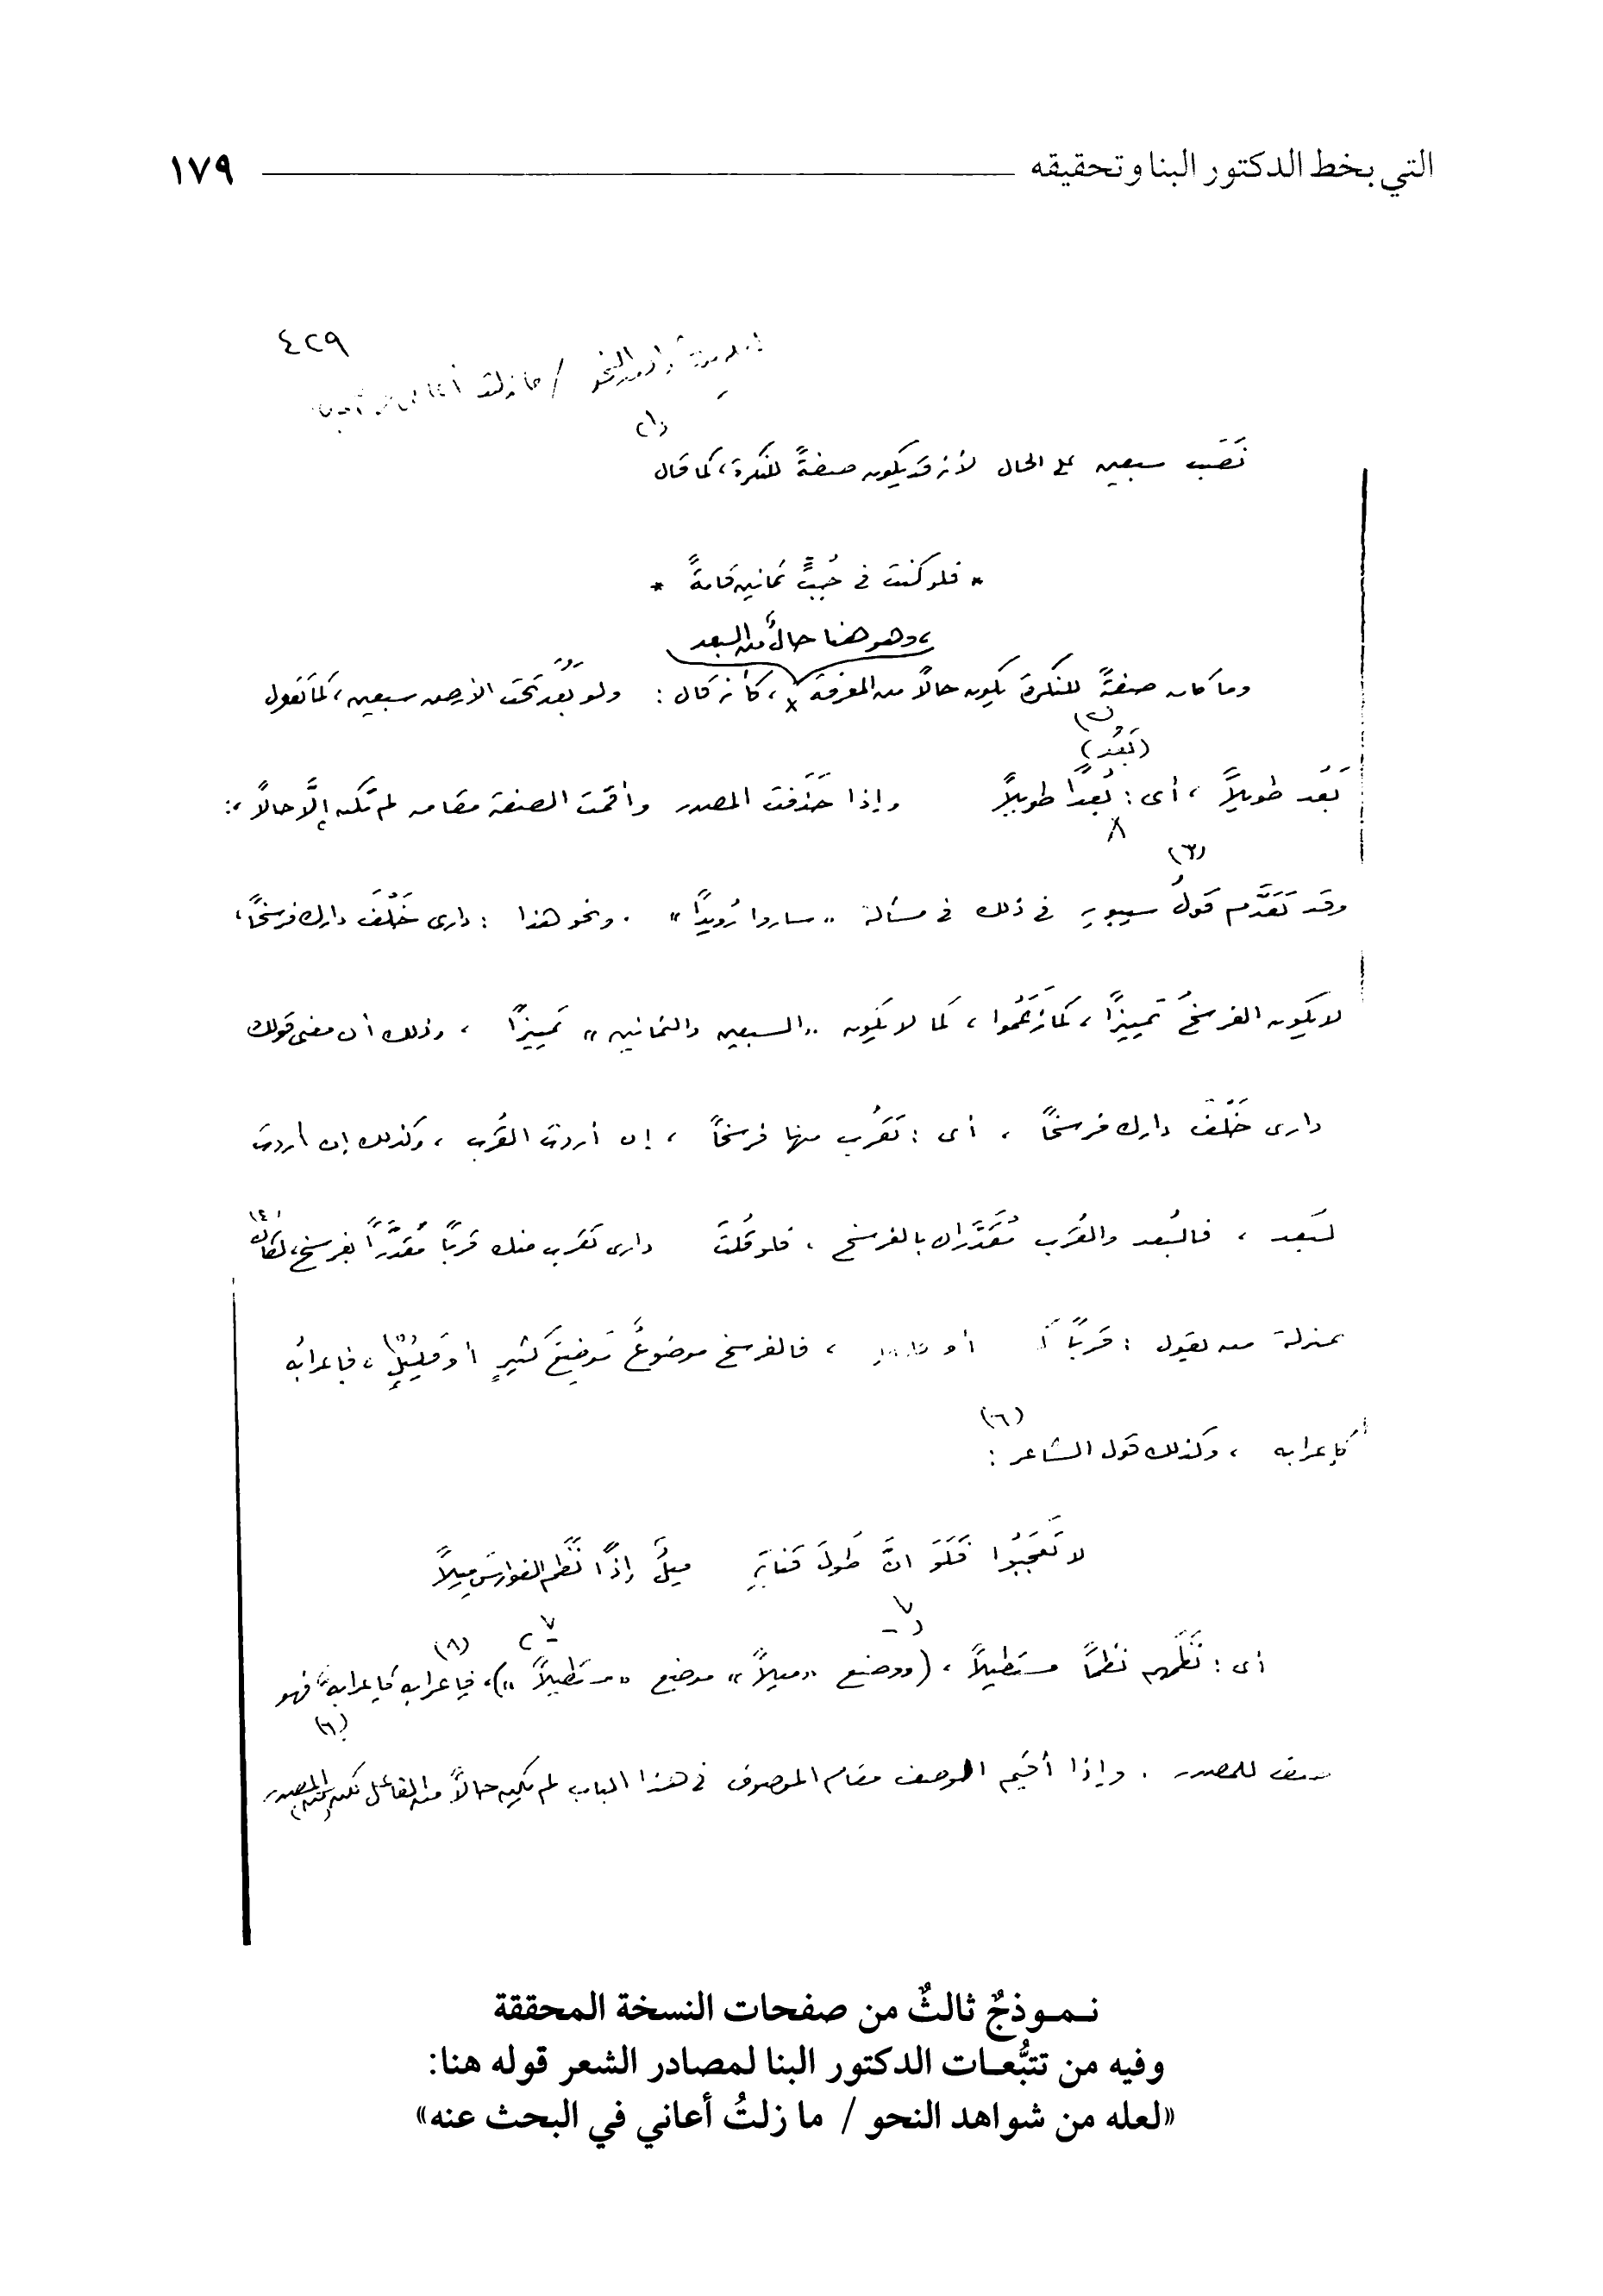 التي بخط الدكتور البنا وتحقيقه ١٧٩
٤٢٩
النحو / ما زلت
(١)
نَصَب سبعين على الحال لأنه قد يكون صفةً للنكرة، كما قال
* فلو كنت في جُبٍّ ثمانين قامةً *
، وهو هنا حالٌ من البعد
وما كان صفةً للنكرة يكون حالاً من المعرفة × ، كأنه قال : ولو بَعُد تحت الأرض سبعين، كما تقول
(٢)
(بَعُد)
بَعُد طويلاً ، أى : بُعداً طويلاً وإذا حَذَفت المصدر وأقمت الصفة مقامه لم تكن إلَّا حالاً ،:
(٣)
وقد تَقَدَّم قولُ سيبويه فى ذلك فى مسألة «ساروا رُويداً» . ونحو هذا : دارى خَلْفَ دارك فرسخاً ،
لا يكون الفرسخُ تمييزاً ، كما زَعَمُوا ، كما لا يكون «السبعين والثمانين» تمييزاً ، وذلك أن معنى قولك
دارى خَلْفَ دارك فرسخاً ، أى : تَقْرُب منها فرسخاً ، إن أردت القُرب ، وكذلك إن أردت
البُعد ، فالبُعد والقُرب مُقَدَّران بالفرسخ ، فلو قُلتَ دارى تقرب منك قرباً مُقدَّراً بفرسخ، لكان (٤)
بمنزلة من يقول : قرباً أو ، فالفرسخ موضوعٌ موضِعَ كثيرٍ أو قليلٍ ، فإعرابُه
كإعرابه ، وكذلك قول الشاعر (٦) :
لا تَعْجَبُوا فَلَوَ انَّ طُولَ قناتِهِ ميلٌ إذاً نَظَم الفوارسَ ميلاً
أى : نَظَمَهم نظماً مستطيلاً ، (ووضع «ميلاً» موضع «مستطيلاً»)، فإعرابه كإعرابه (٨) فهو
(٦)
وصف للمصدر . وإذا أقيم الوصف مقام الموصوف فى هذا الباب لم يكن حالاً من الفاعل لكن من المصدر
نـمـوذجٌ ثالثٌ من صفحات النسخة المحققة
وفيه من تتبُّعـات الدكتور البنا لمصادر الشعر قوله هنا:
«لعله من شواهد النحو / ما زلتُ أعاني في البحث عنه»